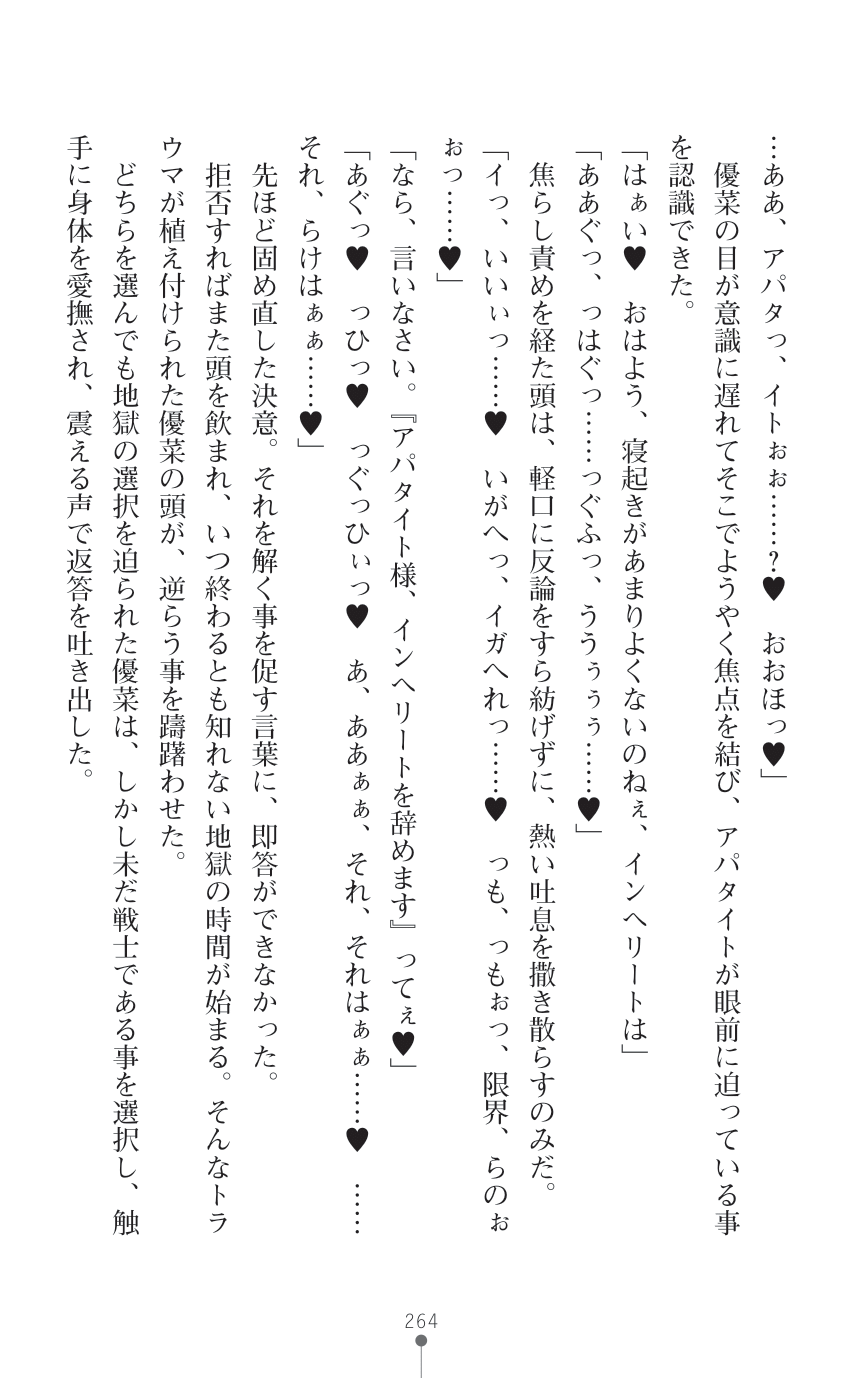 …ああ、アパタっ、イトぉぉ……？♥　おおほっ♥」
　優菜の目が意識に遅れてそこでようやく焦点を結び、アパタイトが眼前に迫っている事
を認識できた。
「はぁい♥　おはよう、寝起きがあまりよくないのねぇ、インヘリートは」
「ああぐっ、っはぐっ……っぐふっ、うぅぅぅ……♥」
　焦らし責めを経た頭は、軽口に反論をすら紡げずに、熱い吐息を撒き散らすのみだ。
「イっ、いいぃっ……♥　いがへっ、イガへれっ……♥　っも、っもぉっ、限界、らのぉ
ぉっ……♥」
「なら、言いなさい。『アパタイト様、インヘリートを辞めます』ってぇ♥」
「あぐっ♥　っひっ♥　っぐっひぃっ♥　あ、ああぁぁ、それ、それはぁぁ……♥　……
それ、らけはぁぁ……♥」
　先ほど固め直した決意。それを解く事を促す言葉に、即答ができなかった。
　拒否すればまた頭を飲まれ、いつ終わるとも知れない地獄の時間が始まる。そんなトラ
ウマが植え付けられた優菜の頭が、逆らう事を躊躇わせた。
　どちらを選んでも地獄の選択を迫られた優菜は、しかし未だ戦士である事を選択し、触
手に身体を愛撫され、震える声で返答を吐き出した。
264